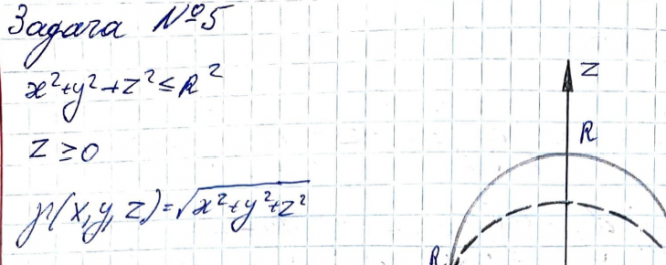 Задача №5
x²+y²+z²≤R²
z≥0
μ(x,y,z)=√x²+y²+z²
z
R
R